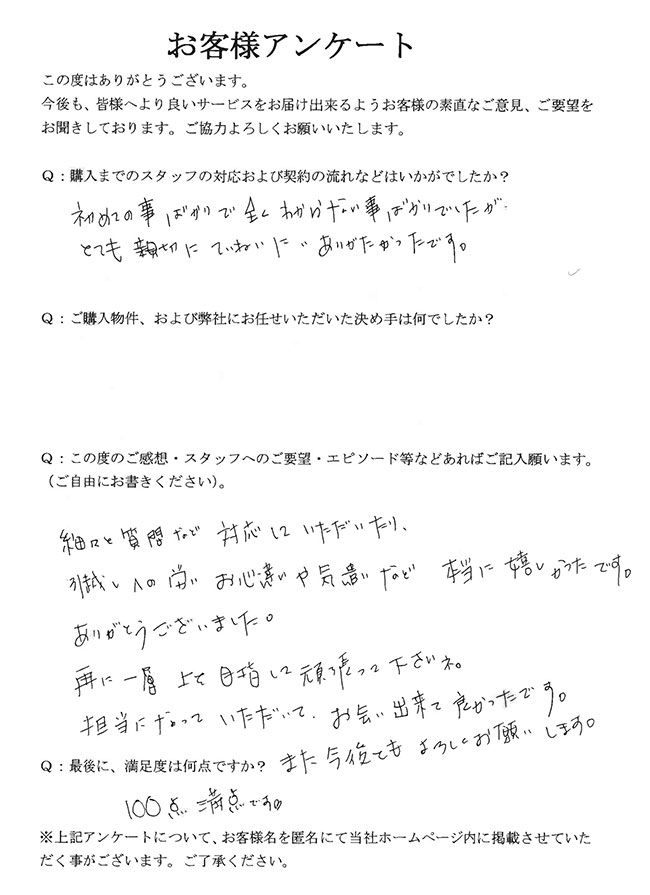 お客様アンケート
この度はありがとうございます。
今後も、皆様へより良いサービスをお届け出来るようお客様の素直なご意見、ご要望を
お聞きしております。ご協力よろしくお願いいたします。
Q：購入までのスタッフの対応および契約の流れなどはいかがでしたか？
初めての事ばかりで全くわからない事ばかりでしたが、
とても親切にていねいに、ありがたかったです。
Q：ご購入物件、および弊社にお任せいただいた決め手は何でしたか？
Q：この度のご感想・スタッフへのご要望・エピソード等などあればご記入願います。
（ご自由にお書きください）。
細々と質問など対応していただいたり、
引越しへの労い お心遣いや気遣いなど 本当に嬉しかったです。
ありがとうございました。
再に一層上を目指して頑張って下さいネ。
担当になっていただいて、お会い出来て良かったです。
また今後ともよろしくお願いします。
Q：最後に、満足度は何点ですか？
100点満点です。
※上記アンケートについて、お客様名を匿名にて当社ホームページ内に掲載させていた
だく事がございます。ご了承ください。